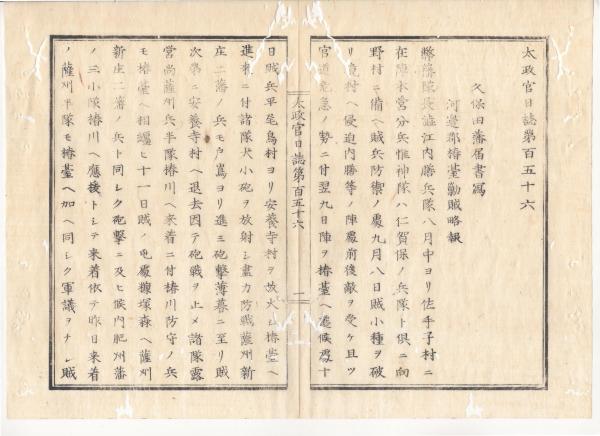 太政官日誌第百五十六
久保田藩届書寫
河邊郡椿臺勦賊略報
弊藩隊長澁江内膳兵隊八月中ヨリ佐手子村ニ
在陣本営分兵惟神隊ハ仁賀保ノ兵隊ト倶ニ向
野村ニ備ヘ賊兵防禦ノ處九月八日賊小種ヲ破
リ境村ヘ侵迫内膳等ノ陣處前後敵ヲ受ケ且ツ
官道危急ノ勢ニ付翌九日陣ヲ椿臺ヘ遷候處十
太政官日誌第百五十六
一
日賊兵平尾鳥村ヨリ安養寺村ヲ放火シ椿臺ヘ
進来ニ付諸隊犬小砲ヲ放射シ盡力防戦薩州新
座二藩ノ兵モ戸嶌ヨリ進ミ砲撃薄暮ニ至リ賊
次第ニ安養寺村ヘ退去因テ砲戦ヲ止メ諸隊露
営尚薩州兵半隊椿川ヘ来着ニ付椿川防守ノ兵
モ椿臺ヘ相纒ヒ十一日賊ノ屯處糠塚森ヘ薩州
新庄二藩ノ兵ト同シク砲撃ニ及ヒ候内肥州藩
ノ三小隊椿川ヘ應援トシテ来着依テ昨日来着
ノ薩州半隊モ椿臺ヘ加ヘ同シク軍議ヲナシ賊